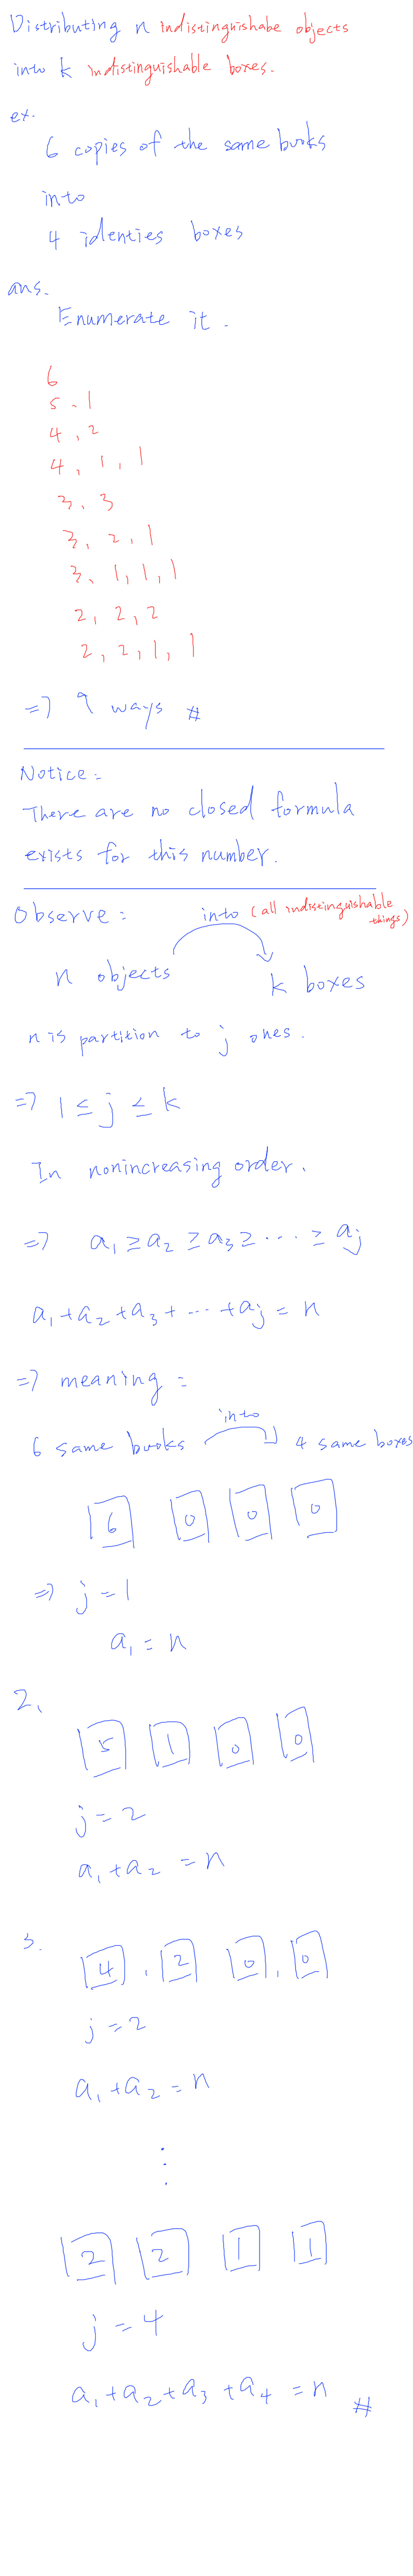 Distributing n indistinguishabe objects
into k indistinguishable boxes.
ex.
6 copies of the same books
into
4 identies boxes
ans.
Enumerate it.
6
5, 1
4, 2
4, 1, 1
3, 3
3, 2, 1
3, 1, 1, 1
2, 2, 2
2, 2, 1, 1
=> 9 ways #
Notice:
There are no closed formula
exists for this number.
Observe: into (all indistinguishable things)
n objects k boxes
n is partition to j ones.
=> 1 ≤ j ≤ k
In nonincreasing order.
=> a₁ ≥ a₂ ≥ a₃ ≥ ... ≥ aⱼ
a₁ + a₂ + a₃ + ... + aⱼ = n
=> meaning:
into
6 same books 4 same boxes
6 0 0 0
=> j = 1
a₁ = n
2.
5 1 0 0
j = 2
a₁ + a₂ = n
3.
4, 2 0, 0
j = 2
a₁ + a₂ = n
⋮
2 2 1 1
j = 4
a₁ + a₂ + a₃ + a₄ = n #